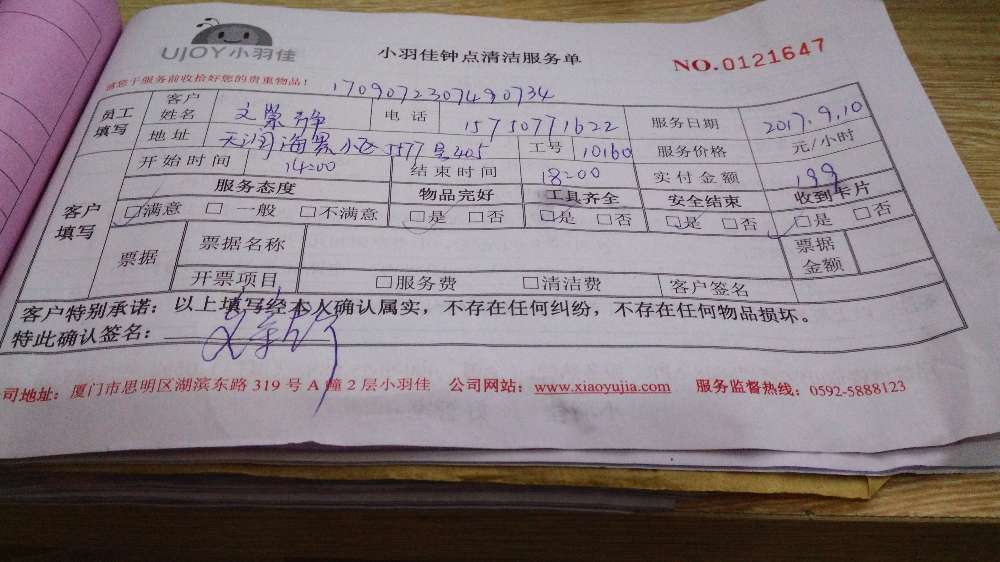 UJOY小羽佳
小羽佳钟点清洁服务单
NO.0121647
请您于服务前收拾好您的贵重物品！
1709072307490734
员工填写 客户姓名 文 静 电话 15750771622 服务日期 2017.9.10
地址 天润海景小区5577号405 工号 10160 服务价格 元/小时
客户填写 开始时间 14:00 结束时间 18:00 实付金额 199
服务态度 物品完好 工具齐全 安全结束 收到卡片
□满意 □一般 □不满意 □是 □否 □是 □否 □是 □否 □是 □否
票据 票据名称 票据金额
开票项目 □服务费 □清洁费 客户签名
客户特别承诺：以上填写经本人确认属实，不存在任何纠纷，不存在任何物品损坏。
特此确认签名：
司地址：厦门市思明区湖滨东路 319 号 A 幢 2 层小羽佳 公司网站：www.xiaoyujia.com 服务监督热线：0592-5888123